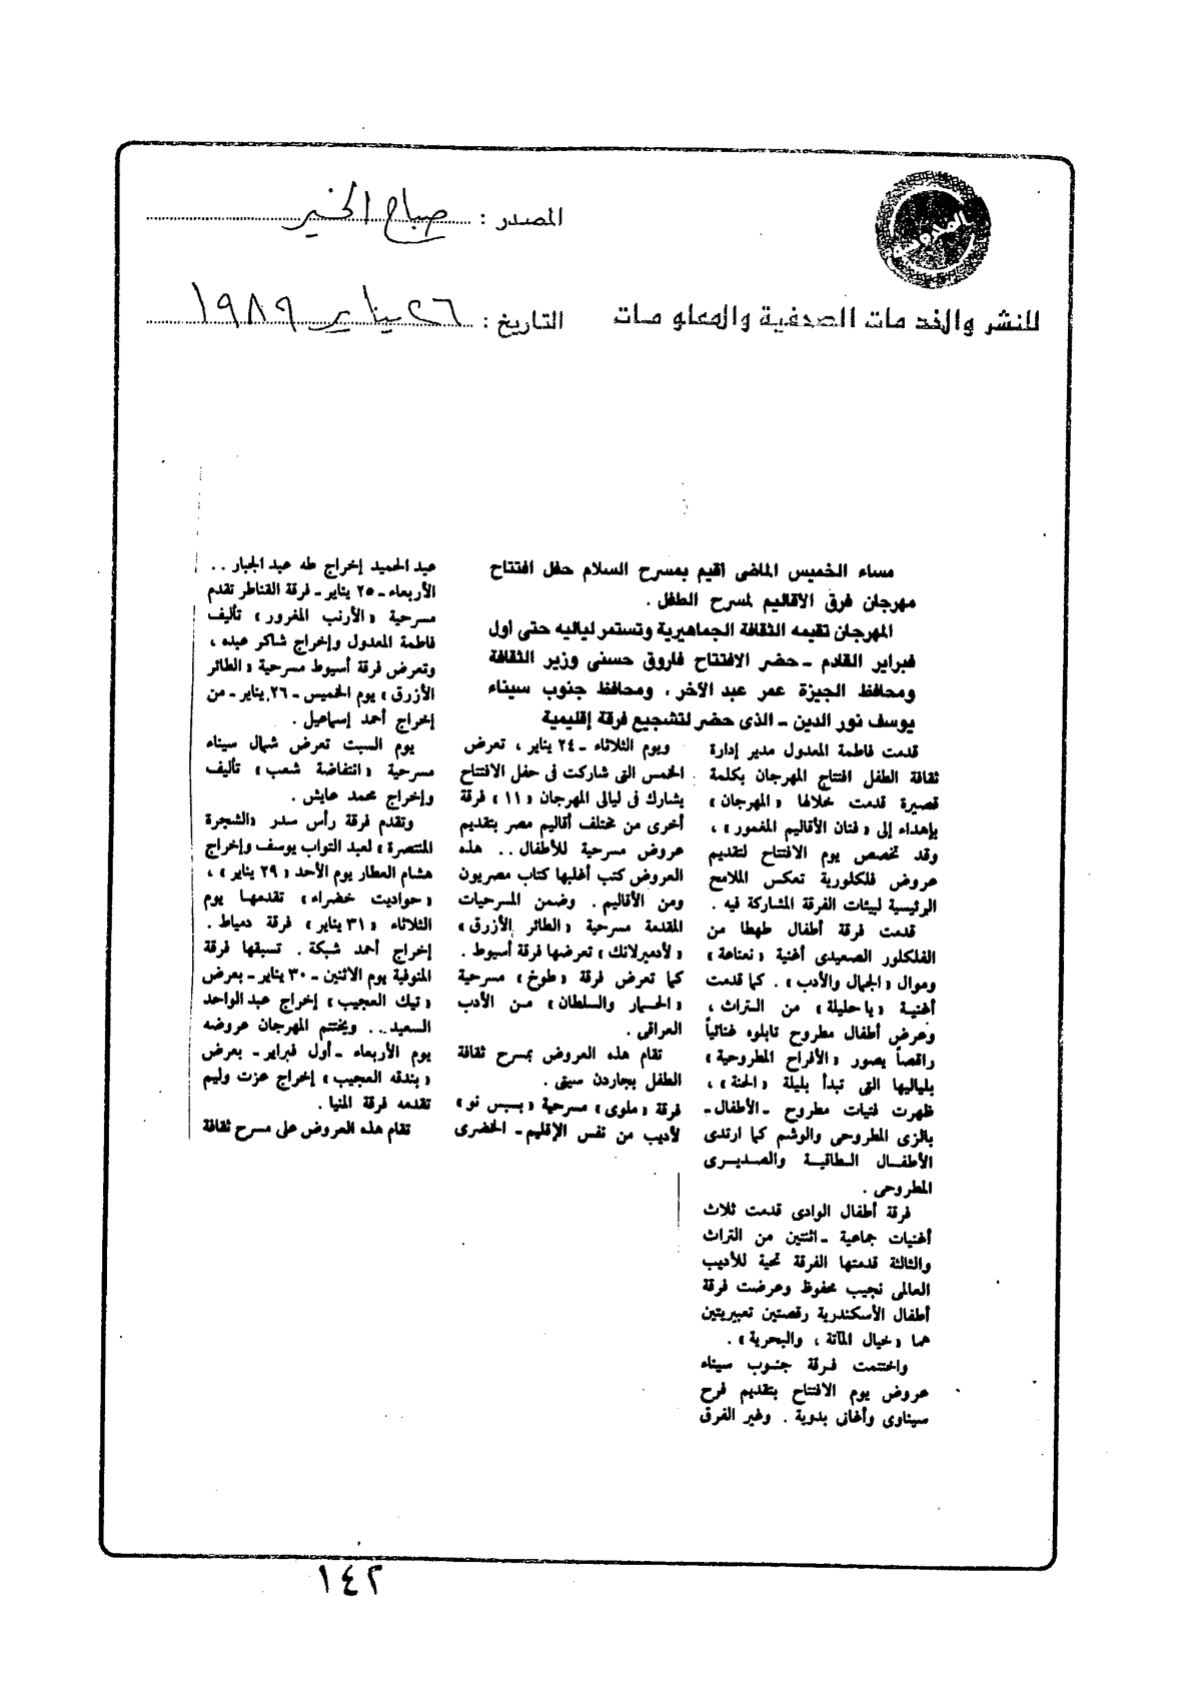 المصدر : صباح الخير
للنشر والخدمات الصحفية والمعلومات
التاريخ : ٢٦ يناير ١٩٨٩
مساء الخميس الماضى اقيم بمسرح السلام حفل افتتاح
مهرجان فرق الاقاليم لمسرح الطفل .
المهرجان تقيمه الثقافة الجماهيرية وتستمر لياليه حتى اول
فبراير القادم ـ حضر الافتتاح فاروق حسنى وزير الثقافة
ومحافظ الجيزة عمر عبد الآخر ، ومحافظ جنوب سيناء
يوسف نور الدين ـ الذى حضر لتشجيع فرقة إقليمية
قدمت فاطمة المعدول مدير إدارة
ثقافة الطفل افتتاح المهرجان بكلمة
قصيرة قدمت خلالها «المهرجان»
بإهداء إلى «فنان الأقاليم المغمور» ،
وقد تخصص يوم الافتتاح لتقديم
عروض فلكلورية تعكس الملامح
الرئيسية لبيئات الفرقة المشاركة فيه .
قدمت فرقة أطفال طهطا من
الفلكلور الصعيدى أغنية «نعناعة»
وموال «الجمال والأدب» . كما قدمت
أغنية «ياحليلة» من التراث ،
وعرض أطفال مطروح تابلوه غنائياً
راقصاً يصور «الأفراح المطروحية»
بلياليها التى تبدأ بليلة «الحنة» ،
ظهرت فتيات مطروح ـ الأطفال ـ
بالزى المطروحى والوشم كما ارتدى
الأطفـال الطاقيـة والصديـرى
المطروحى .
فرقة أطفال الوادى قدمت ثلاث
أغنيات جماعية ـ اثنتين من التراث
والثالثة قدمتها الفرقة تحية للأديب
العالمى نجيب محفوظ وعرضت فرقة
أطفال الأسكندرية رقصتين تعبيريتين
هما «خيال المآتة ، والبحرية» .
واختتمت فرقة جنوب سيناء
عروض يوم الافتتاح بتقديم فرح
سيناوى وأغانى بدوية . وغير الفرق
الخمس التى شاركت فى حفل الافتتاح
يشارك فى ليالى المهرجان «١١» فرقة
أخرى من مختلف أقاليم مصر بتقديم
عروض مسرحية للأطفال .. هذه
العروض كتب أغلبها كتاب مصريون
ومن الأقاليم . وضمن المسرحيات
المقدمة مسرحية «الطائر الأزرق»
«لأدميرلانك» تعرضها فرقة أسيوط .
كما تعرض فرقة «طوخ» مسرحية
«الحمار والسلطان» من الأدب
العراقى .
تقام هذه العروض بمسرح ثقافة
الطفل بجاردن سيتى .
ويوم الثلاثاء ـ ٢٤ يناير ، تعرض
فرقة «ملوى» مسرحية «بسبس نو»
لأديب من نفس الإقليم ـ الخضرى
عبد الحميد إخراج طه عبد الجبار ..
الأربعاء ـ ٢٥ يناير ـ فرقة القناطر تقدم
مسرحية «الأرنب المغرور» تأليف
فاطمة المعدول وإخراج شاكر عبده ،
وتعرض فرقة أسيوط مسرحية «الطائر
الأزرق» يوم الخميس ـ ٢٦ يناير ـ من
إخراج أحمد إسماعيل .
يوم السبت تعرض شمال سيناء
مسرحية «انتفاضة شعب» تأليف
وإخراج محمد عايش .
وتقدم فرقة رأس سدر «الشجرة
المنتصرة» لعبد التواب يوسف وإخراج
هشام العطار يوم الأحد «٢٩ يناير» ،
«حواديت خضراء» تقدمها يوم
الثلاثاء «٣١ يناير» فرقة دمياط .
إخراج أحمد شبكة . تسبقها فرقة
المنوفية يوم الاثنين ـ ٣٠ يناير ـ بعرض
«تيك العجيب» إخراج عبد الواحد
السعيد .. ويختتم المهرجان عروضه
يوم الأربعاء ـ أول فبراير ـ بعرض
«بندقه العجيب» إخراج عزت وليم
تقدمه فرقة المنيا .
تقام هذه العروض على مسرح ثقافة
١٤٢